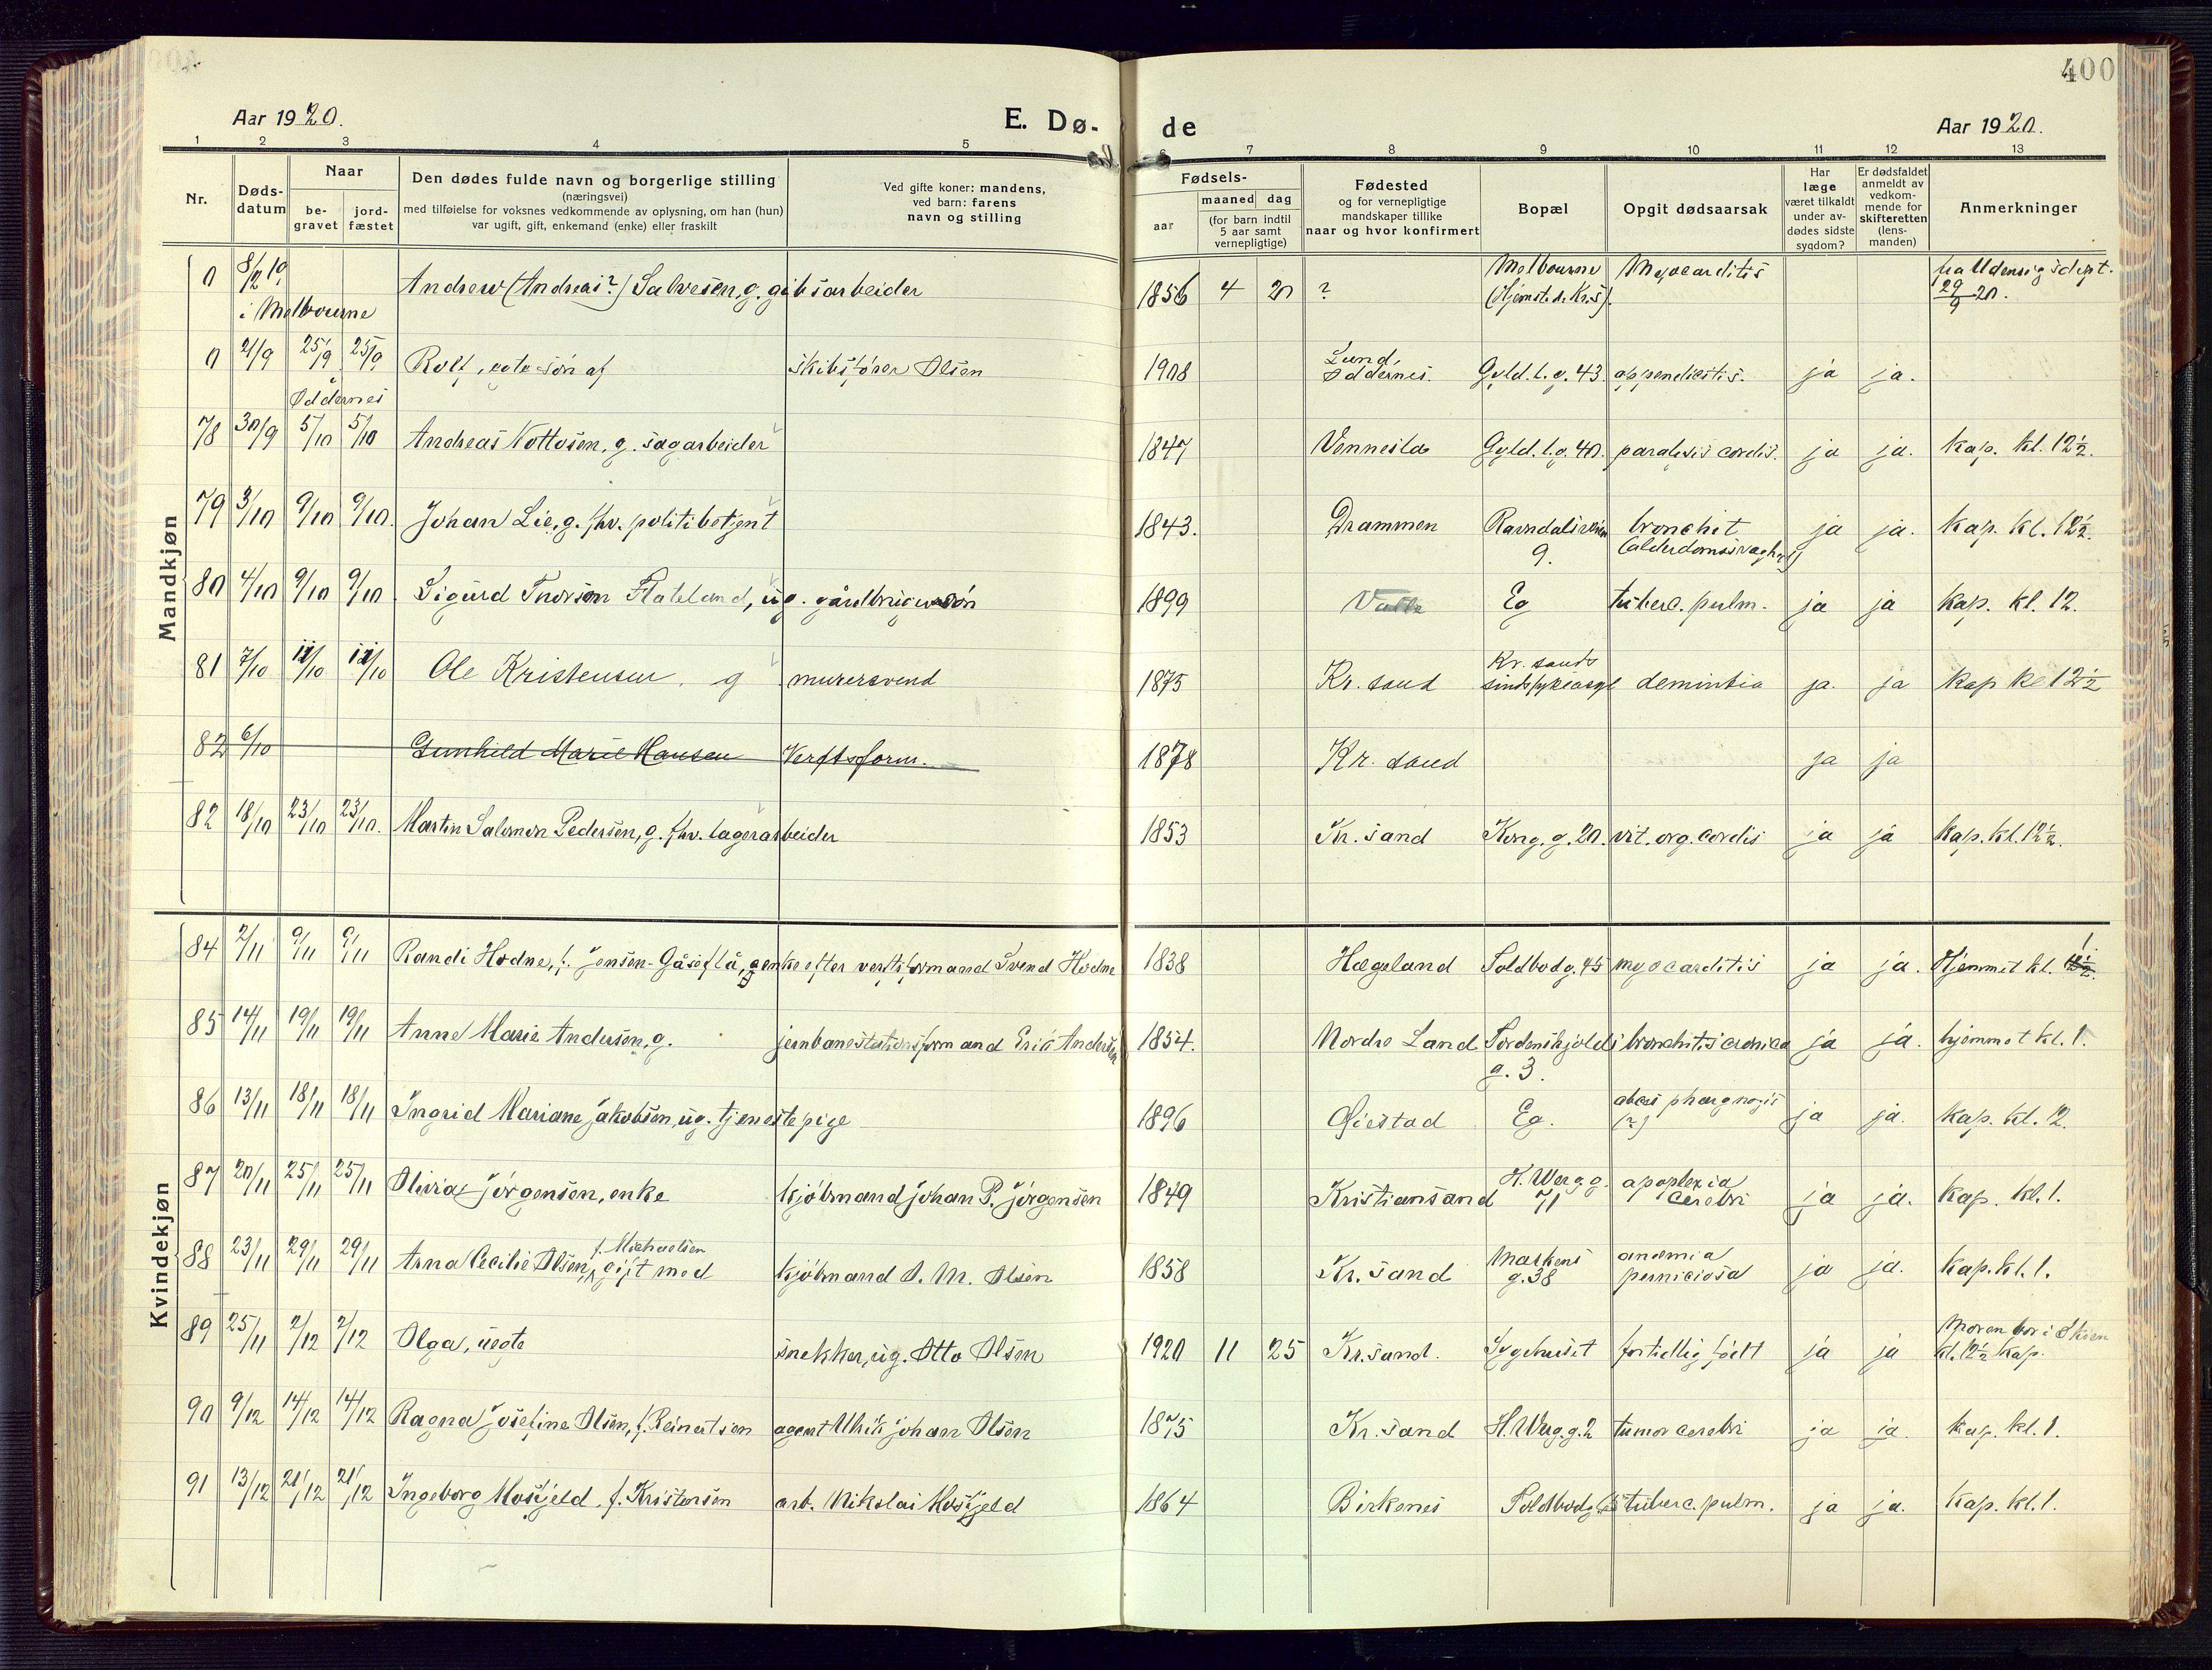 400
Aar 1920. E. Dø- de Aar 1920.
1 2 3 4 5 6 7 8 9 10 11 12 13
Nr.
Døds-
datum
Naar
be-
gravet
jord-
fæstet
Den dødes fulde navn og borgerlige stilling
(næringsvei)
med tilføielse for voksnes vedkommende av oplysning, om han (hun)
var ugift, gift, enkemand (enke) eller fraskilt
Ved gifte koner: mandens,
ved barn: farens
navn og stilling
Fødsels-
aar
maaned dag
(for barn indtil
5 aar samt
vernepligtige)
Fødested
og for vernepligtige
mandskaper tillike
naar og hvor konfirmert
Bopæl
Opgit dødsaarsak
Har
læge
været tilkaldt
under av-
dødes sidste
sygdom?
Er dødsfaldet
anmeldt av
vedkom-
mende for
skifteretten
(lens-
manden)
Anmerkninger
Mandkjøn
0 8/12 19 i Melbourne Andrew (Andreas?) Salvesen, g. gibsarbeider 1856 4 20 ? Melbourne (Hjemsted. Kr.S). Myocarditis fra Udenrigsdept. 29/9 20.
0 21/9 25/9 25/9 Oddernes Rolf, egte søn af skibsfører Olsen 1908 Lund, Oddernes. Gyld. l. g. 43 appendicitis. ja ja.
78 30/9 5/10 5/10 Andreas Nottosen, g. sagarbeider 1847 Vennesla Gyld. l. g. 40. paralysis cordis. ja ja. kap. kl. 12 1/2.
79 3/10 9/10 9/10. Johan Lie, g. fhv. politibetjent 1843. Drammen Ravndalsveien 9. bronchit (alderdomssvaghet) ja ja. kap. kl. 12 1/2.
80 4/10 9/10 9/10 Sigurd Thorson Flateland, ug. gårdbrugersøn 1899 Valle Eg tuberc. pulm. ja ja kap. kl. 12.
81 7/10 12/10 12/10 Ole Kristensen, g murersvend 1875 Kr. sand Kr. sands sindssykeasyl demintia ja. ja kap kl 12 1/2
82 6/10 Gunhild Marie Hansen Verftsform. 1878 Kr. sand ja ja
82 18/10 23/10 23/10. Martin Salomon Pedersen, g. fhv. lagerarbeider 1853 Kr. sand Kong. g. 20. vit. org. cordis ja ja kap. kl. 12 1/2.
Kvindekjøn
84 2/11 9/11 9/11 Randi Hodne, f. Jensen-Gåseflå, enke efter verftsformand Svend Hodne 1838 Hægeland Toldbodg. 45 myocarditis ja ja. Hjemmet kl. 1
85 14/11 19/11 19/11 Anne Marie Andersen, g. jernbanestationsformand Erik Andersen 1854. Nordre Land Tordenskjolds g. 3. bronchitis cronica ja ja. hjemmet kl. 1.
86 13/11 18/11 18/11 Ingrid Mariane Jakobsen, ug. tjenestepige 1896 Øiestad Eg. (?) ja ja. kap. kl. 12.
87 20/11 25/11 25/11 Olivia Jørgensen, enke kjøbmand Johan P. Jørgensen 1849 Kristiansand H. Werg. g. 71 apoplexia cerebri ja ja. kap. kl. 1.
88 23/11 29/11 29/11 Anna Cecilie Olsen, f. Michaelsen gift med kjøbmand O. M. Olsen 1858 Kr. sand Markens g. 38 anæmia perniciosa ja ja. kap. kl. 1.
89 25/11 2/12 2/12 Olga, uegte snekker, ug. Otto Olsen 1920 11 25 Kr. sand. Sygehuset fortidlig født ja ja Moren bor i Skien kl. 12 1/2 kap.
90 9/12 14/12 14/12 Ragna Josefine Olsen, f. Reinertsen agent Ulrik Johan Olsen 1875 Kr. sand H. Werg. g. 2 tumor cerebri ja ja. kap. kl. 1.
91 13/12 21/12 21/12 Ingeborg Mosfjeld, f. Kristensen arb. Nikolai Mosfjeld 1864 Birkenes Toldbodg. tuberc. pulm. ja ja. kap. kl. 1.